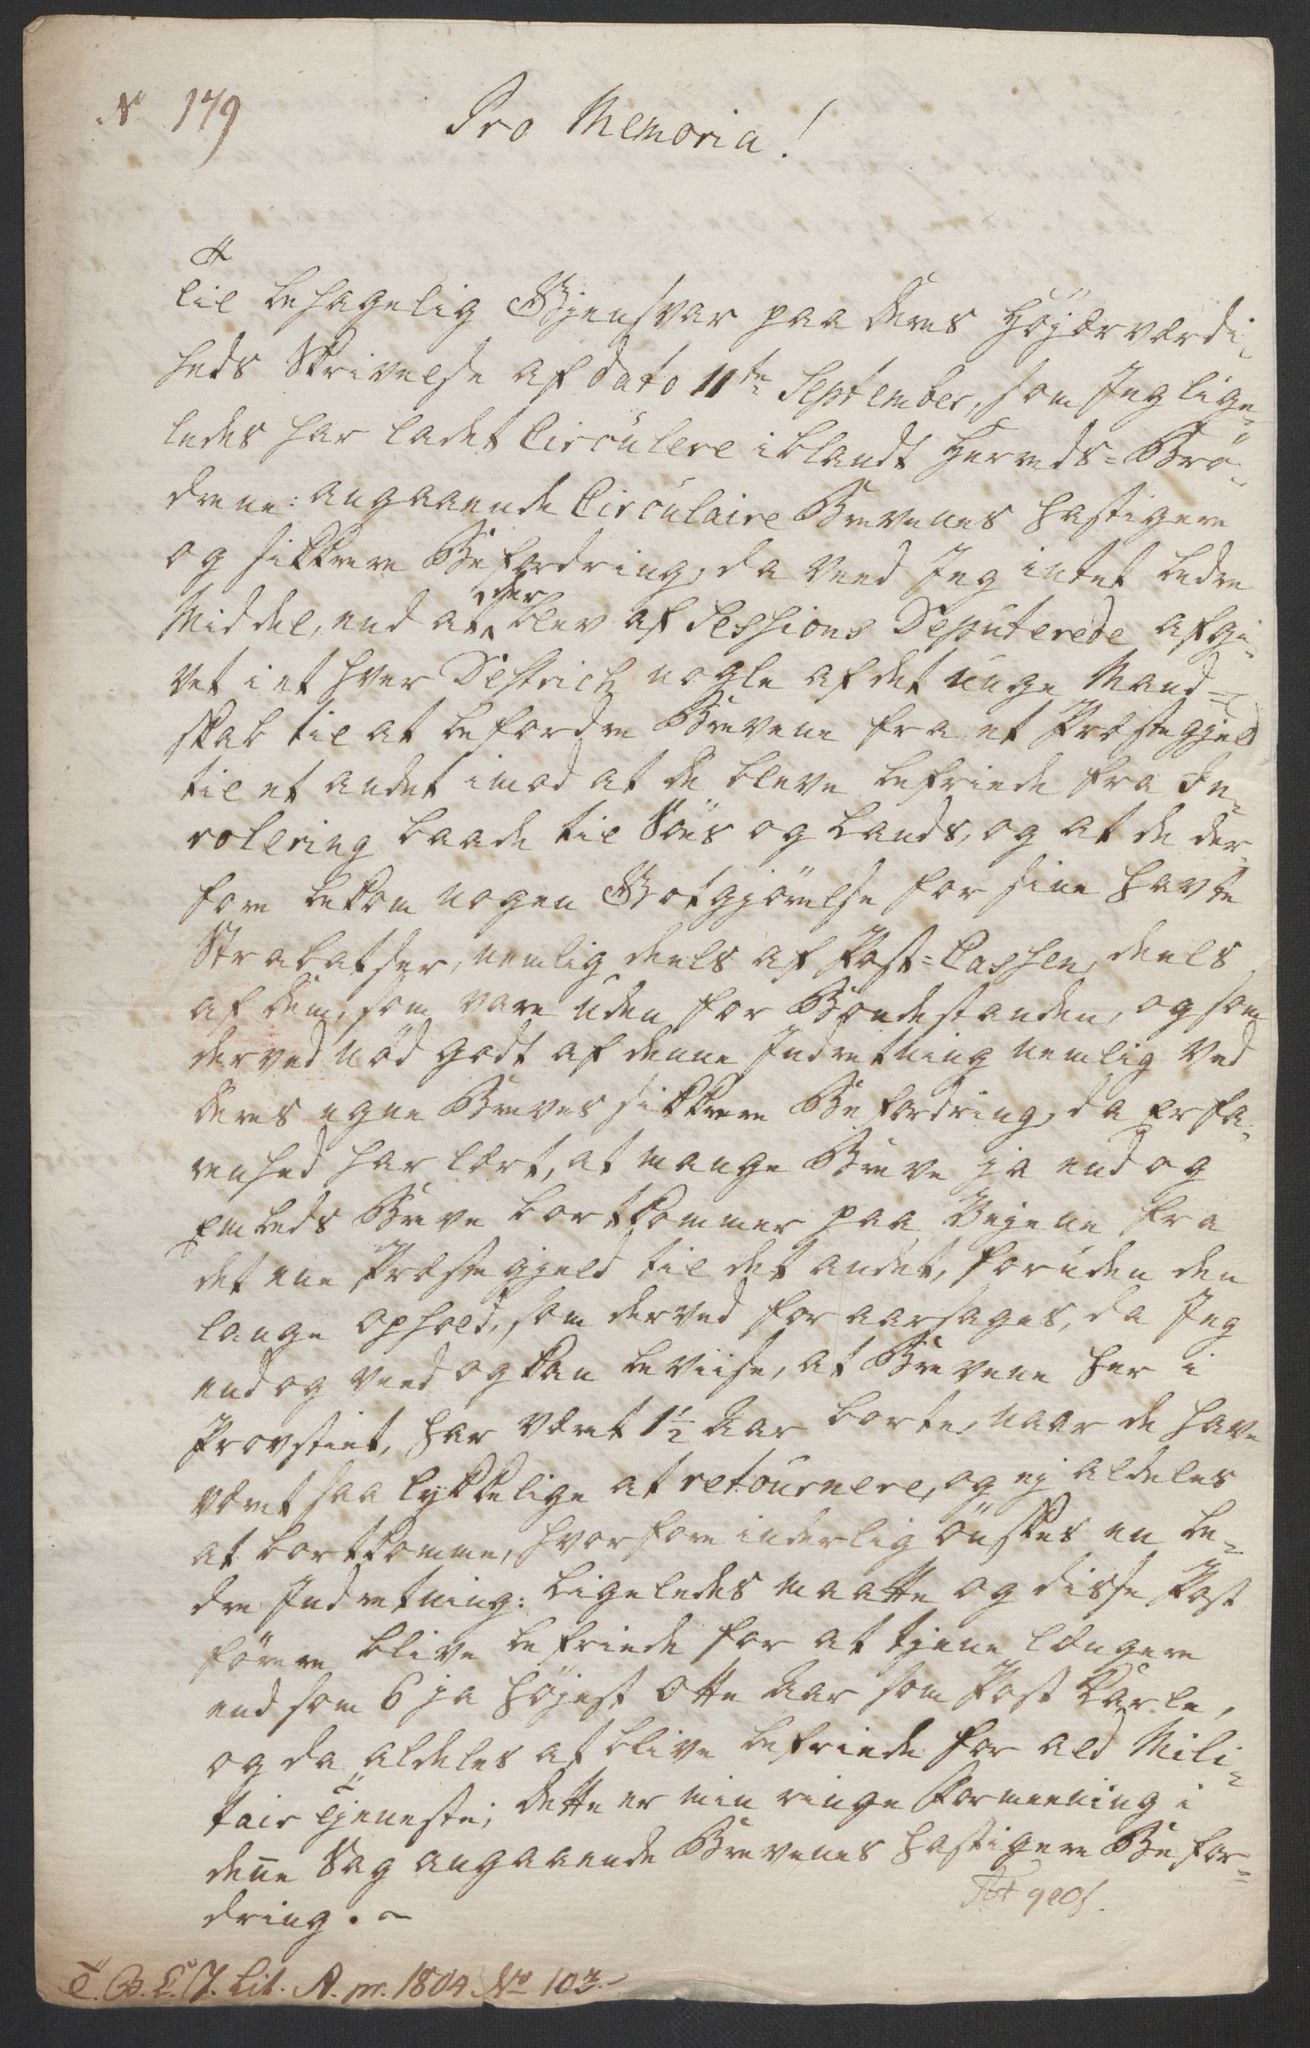 No 179
Pro Memoria!
Til behagelig Gjensvar paa Deres Høyærværdi-
heds Skrivelse af dato 11te September, som Jeg lige-
ledes har ladet Circulere iblandt Herreds-Brö-
drene: angaaende Circulaire Brevenes hastigere
og sikkrere Befordring, da veed Jeg intet bedre
Middel, end at der blev af Sessions Deputerede afgi-
vet i et hver District nogle af det unge Mand-
skab til at befordre Brevene fra et Præstegjeld
til et andet imod at de bleve befriede fra En-
rolering baade til Söes og Lands, og at de der-
fore bekom nogen Godtgjörelse for sine havte
Strabatser, nemlig deels af Post-Cassen, deels
af dem, som vare uden for Bondestanden, og som
derved nöd godt af denne Indretning nemlig ved
deres egne Breves sikkrere Befordring, da Erfa-
renhed har lært, at mange Breve ja endog
Embeds Breve bortkommer paa Veyene fra
det ene Præstegjeld til det andet, foruden den
lange Ophold, som derved foraarsages, da Jeg
endog veed og kan beviise, at Brevene her i
Provstiet, har været 1½ Aar borte, naar de have
været saa lykkelige at retournere, og ej aldeles
at bortkomme, hvorfore inderlig önskes en be-
dre Indretning: Ligeledes maatte og disse Post
förere blive befriede for at tjene længere
end som 6 ja höjest Otte Aar som Post Karle,
og da aldeles at blive befriede for ald Mili-
tair Tjeneste; dette er min ringe Formeening i
denne Sag angaaende Brevenes hastigere Befor-
dring. ~
T. B. C. J. Lit. A. pr. 1804 No 103.